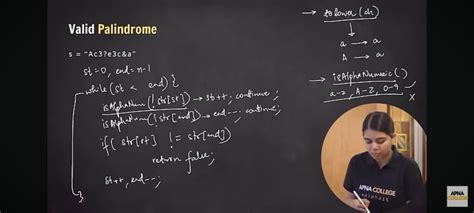 Valid Palindrome
s = "Ac3?e3c&a"
st=0, end=n-1
while(st < end){
isAlphaNum(! str[st]) → st++; continue;
isAlphanum(! str[end]) → end--; continue;
if( str[st] != str[end])
return false;
st++, end--;
}
→ toLower(ch)
a → a
A → a
→ isAlphaNumeric()
a-z, A-Z, 0-9
APNA COLLEGE
APNA
COLLEGE